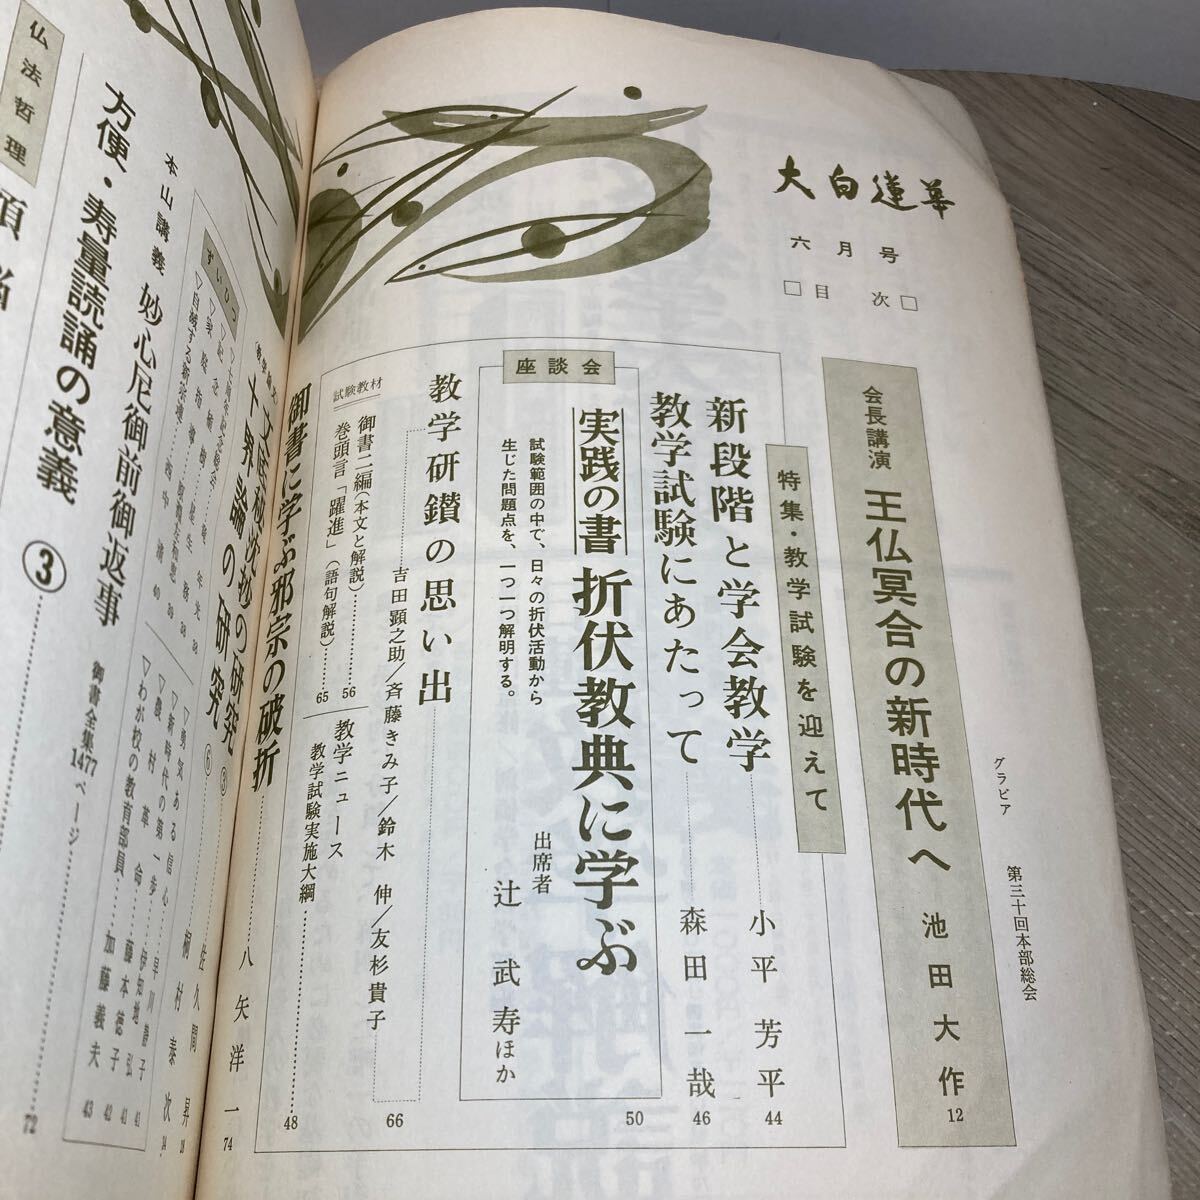 大白蓮華
六月号
□目次□
グラビア 第三十回本部総会
会長講演 王仏冥合の新時代へ 池田大作 12
特集・教学試験を迎えて
新段階と学会教学 小平芳平 44
教学試験にあたって 森田一哉 46
座談会
実践の書 折伏教典に学ぶ 50
試験範囲の中で、日々の折伏活動から
生じた問題点を、一つ一つ解明する。
出席者 辻武寿ほか
教学研鑽の思い出 66
吉田顕之助/斉藤きみ子/鈴木 伸/友杉貴子
試験教材
御書二編(本文と解説) 56
巻頭言「躍進」(語句解説) 65
教学ニュース
教学試験実施大綱 48
御書に学ぶ邪宗の破折 八矢洋一 74
文底秘沈抄の研究 ③ 佐久間 昇
十界論の研究 ⑥ 桐村泰次
ずいひつ
▽勇気ある信心
▽新時代の第一歩 早川静子 41
▽農村革命 伊知地弘 41
▽わが校の教育部員 藤本徳子 42
加藤義夫 43
本山講義 妙心尼御前御返事 御書全集1477ページ
方便・寿量読誦の意義 ③ 72
仏法哲理